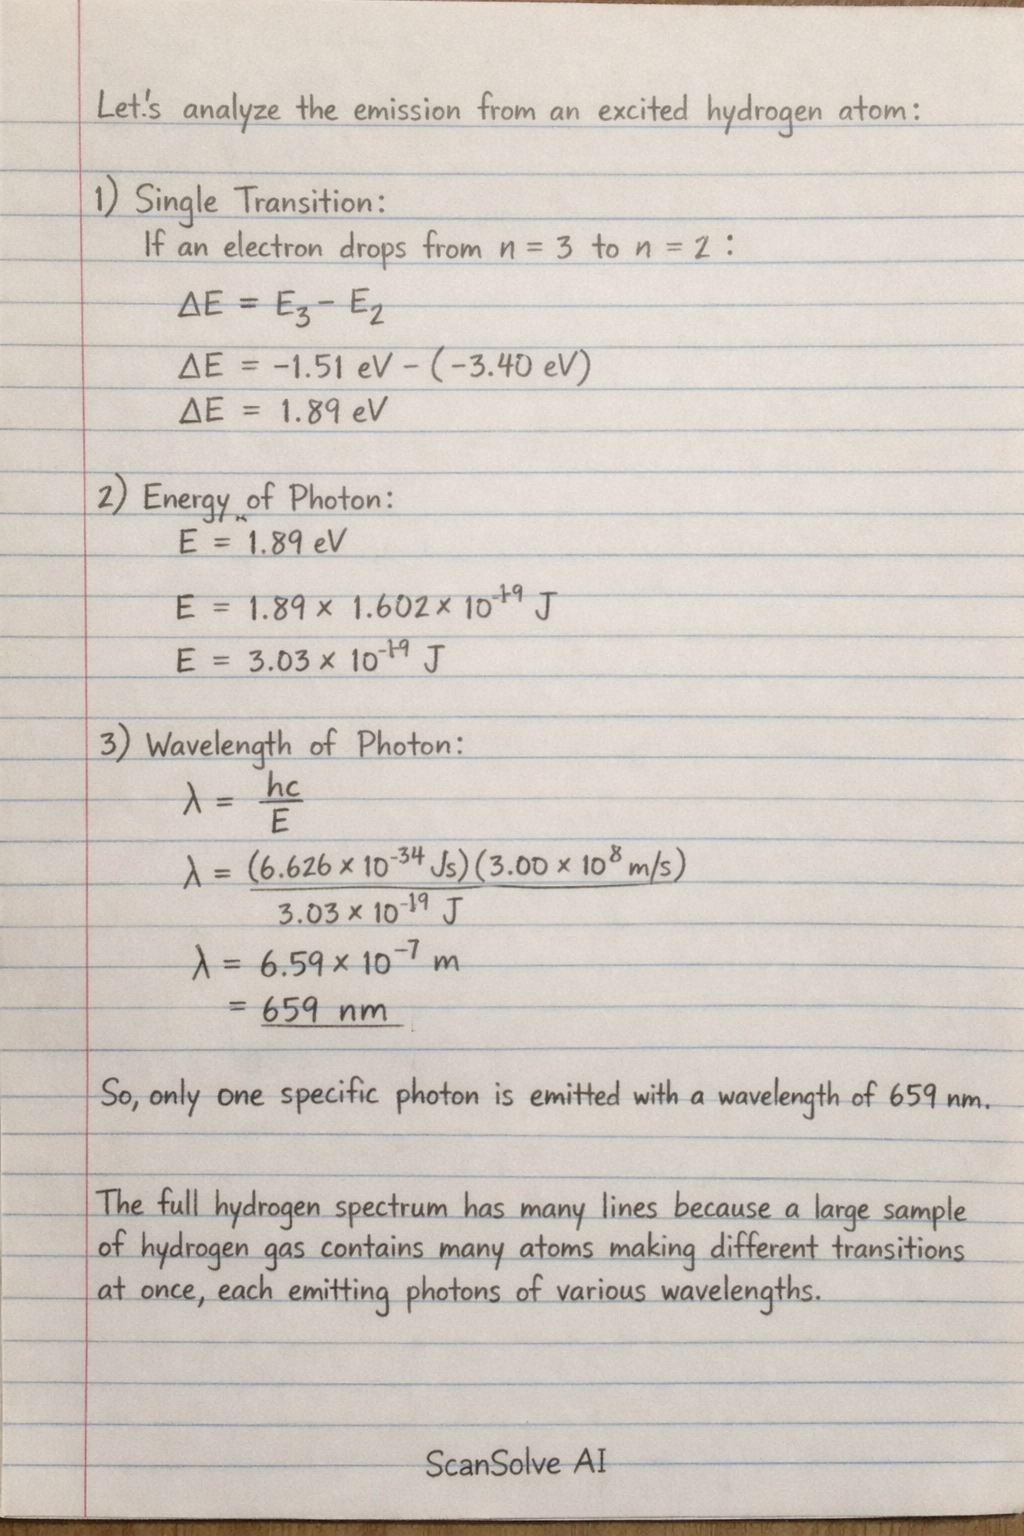 Let's analyze the emission from an excited hydrogen atom:
1) Single Transition:
If an electron drops from n = 3 to n = 2 :
ΔE = E₃ − E₂
ΔE = −1.51 eV − (−3.40 eV)
ΔE = 1.89 eV
2) Energy of Photon:
E = 1.89 eV
E = 1.89 × 1.602 × 10⁻¹⁹ J
E = 3.03 × 10⁻¹⁹ J
3) Wavelength of Photon:
λ = hc
E
λ = (6.626 × 10⁻³⁴ Js)(3.00 × 10⁸ m/s)
3.03 × 10⁻¹⁹ J
λ = 6.59 × 10⁻⁷ m
= 659 nm
So, only one specific photon is emitted with a wavelength of 659 nm.
The full hydrogen spectrum has many lines because a large sample
of hydrogen gas contains many atoms making different transitions
at once, each emitting photons of various wavelengths.
ScanSolve AI